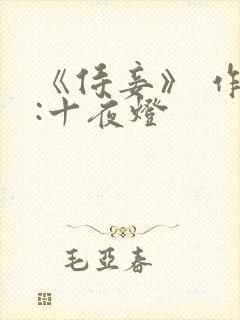 《侍妾》 作
:十夜燈
毛亞春